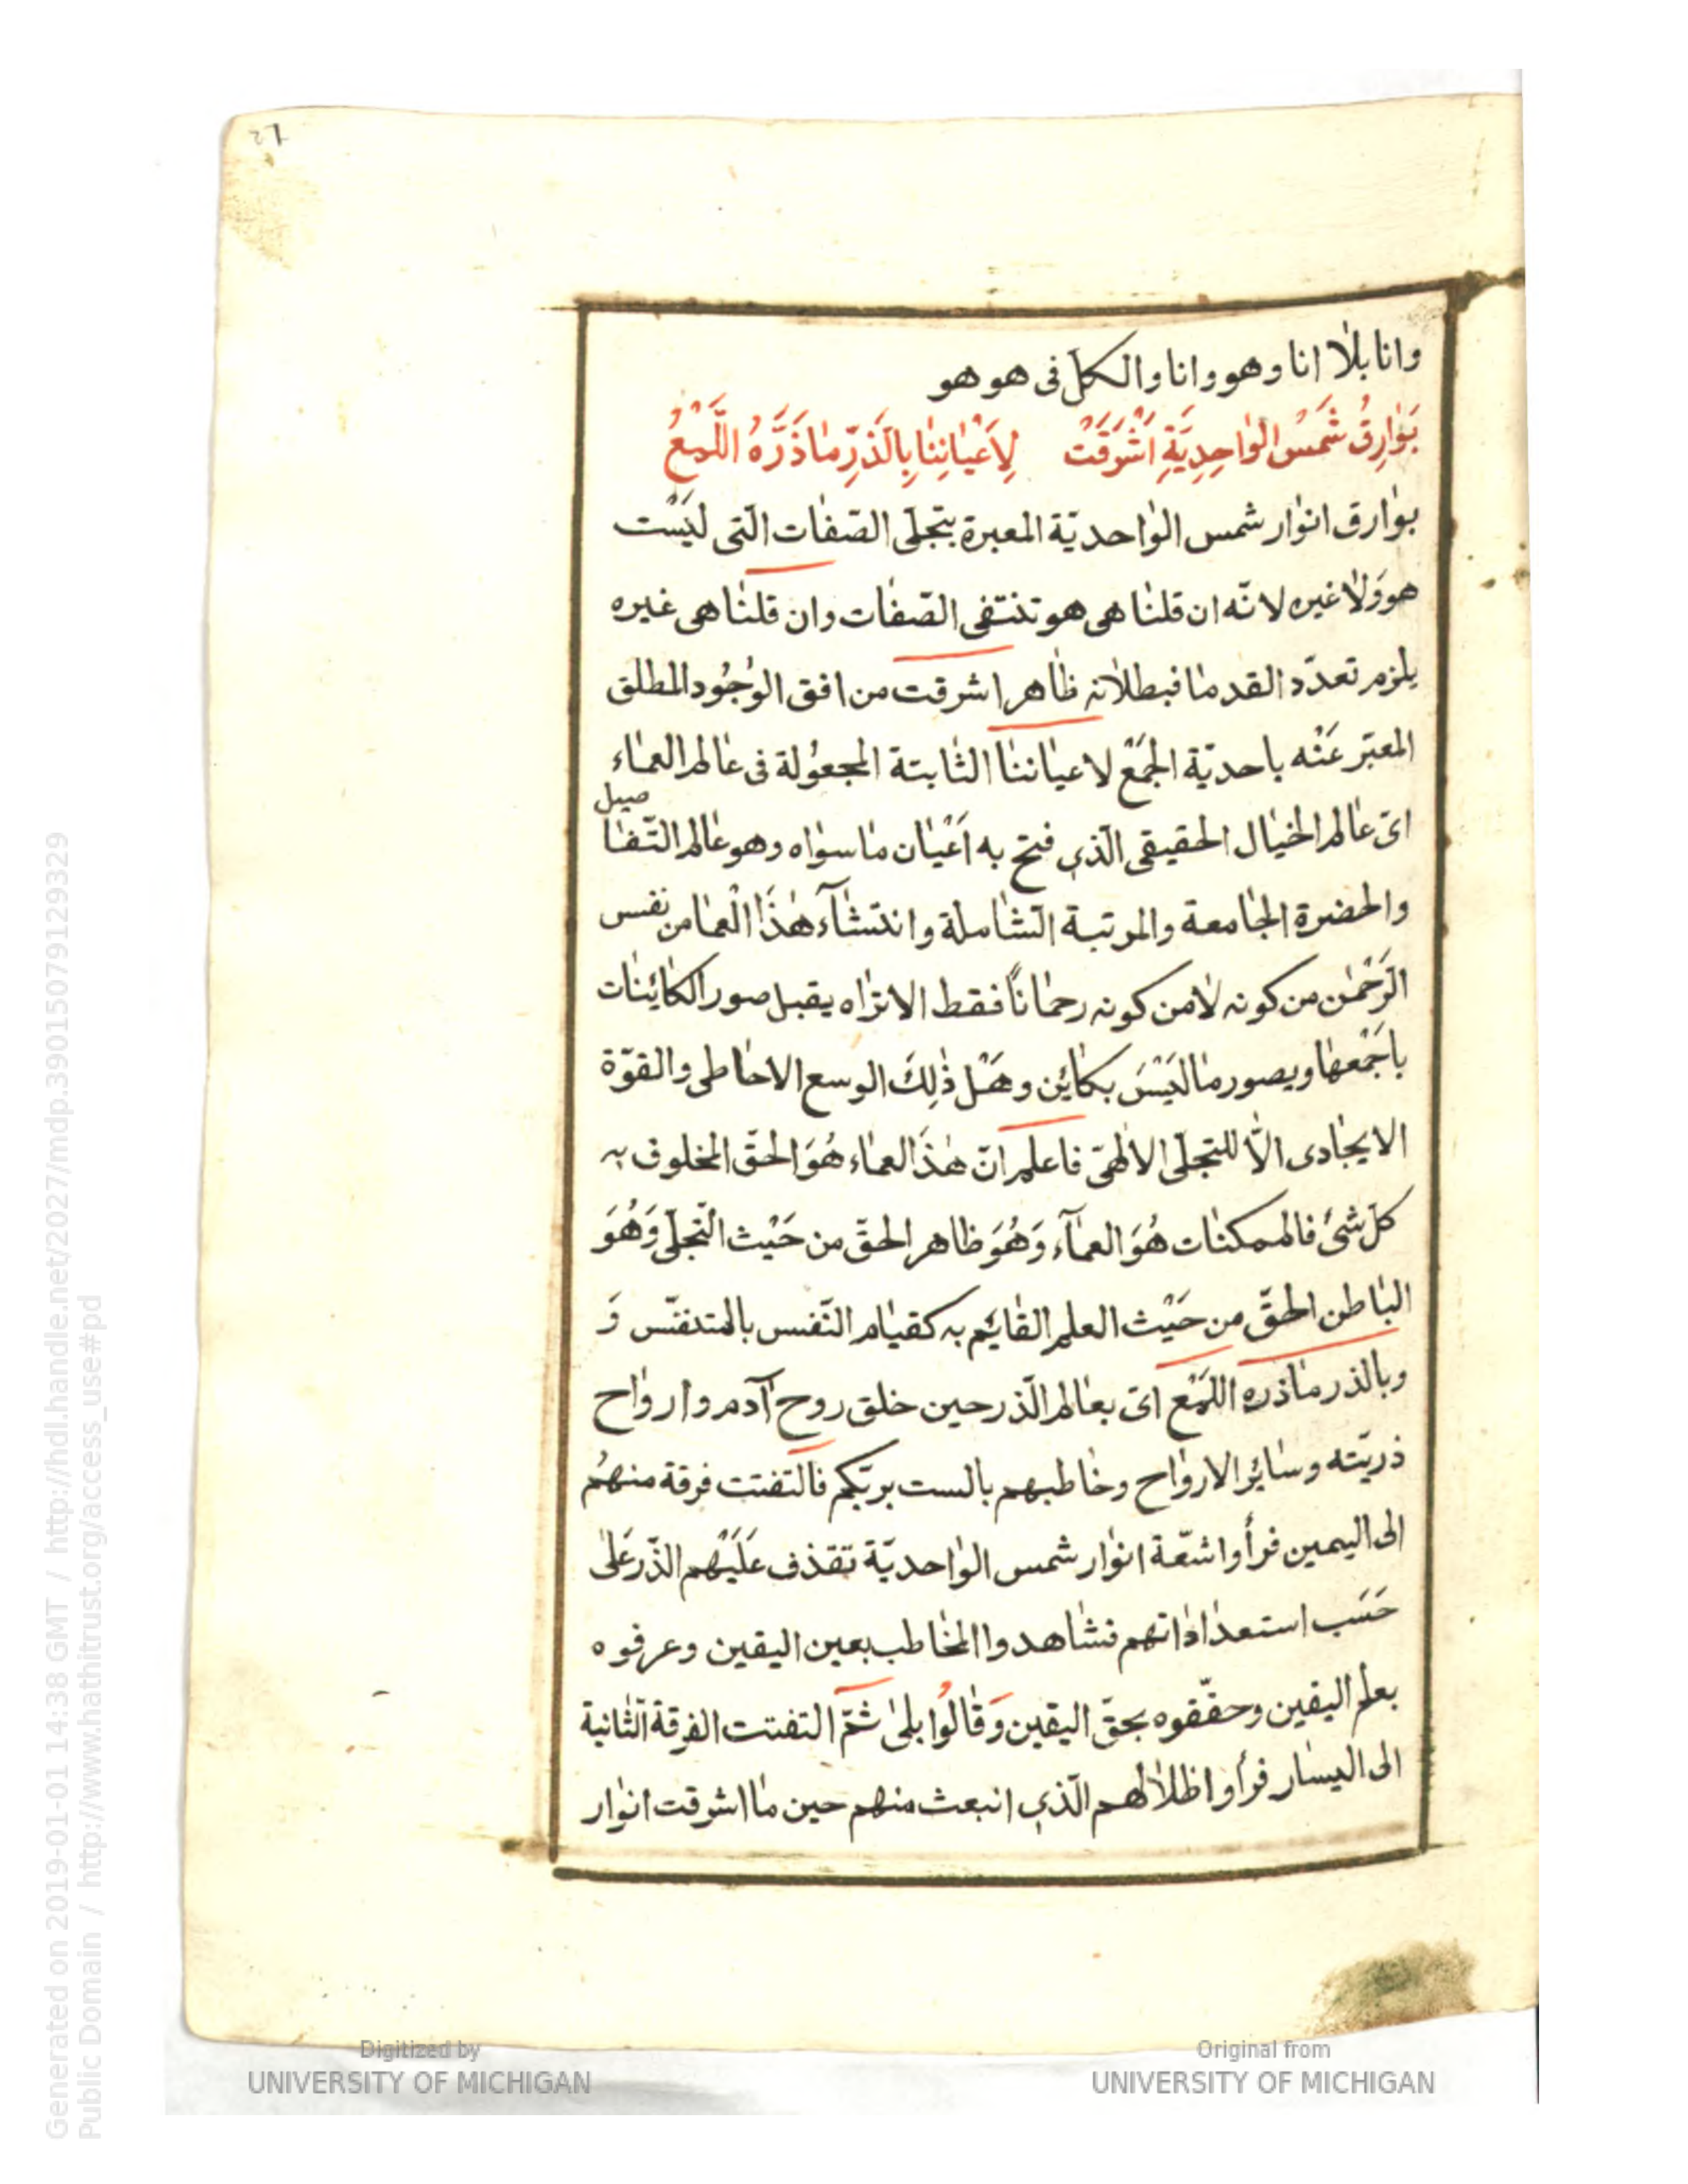 ١٢
وانا بلا انا وهو وانا والكل فى هو هو
بَوَارِقُ شَمَسُ الوٰاحِدِيَّةِ اَشْرَقَتْ لِاَعْيٰانِنٰا بِالَذرِّ مٰا ذَرَّهُ اللَّمْعُ
بوٰارق انوٰار شمس الوٰاحديّة المعبرة بتجلّى الصّفٰات الّتى ليَسْت
هو وَلٰا غيره لانّه ان قلنٰا هى هو تنتفى الصّفٰات وان قلنٰا هى غيره
يلزم تعدّد القدمٰا فبطلٰانه ظٰاهر اشرقت من افق الوُجُود المطلق
المعبّر عَنْه باحديّة الجَمْع لاعيٰاننٰا الثٰابتة المجعوُلة فى عٰالم العمٰاء
اىّ عٰالم الخيٰال الحقيقى الّذى فتح به اَعْيٰان مٰا سوٰاه وهو عٰالم التّفٰا
صيل
والحضرة الجٰامعة والمرتبة الشٰاملة وانتشٰآء هٰذَا الْعمٰا من نفس
الرَّحْمٰن من كونه لٰا من كونه رحمٰانًا فقط الا تراه يقبل صور الكٰائنٰات
باَجْمَعهٰا ويصور مٰا ليَسَْ بكٰاين وهَلْ ذٰلِكَ الوسع الاحٰاطى والقوّة
الايجٰادى الّٰا للتجلّى الالٰهىّ فاعلم انّ هٰذَ العمٰاء هُوَ الحقّ المخلوق به
كلّ شىْ فالممكنٰات هُوَ العمٰآء وَهُوَ ظاهر الحقّ من حَيْث التّجلّى وَهُوَ
البٰاطن الحقّ من حَيْث العلم القٰايم به كقيٰام النّفس بالمتنفّس وَ
وبالذر مٰا ذره اللَمْع اىّ بعٰالم الّذر حين خلق روح آدم وارواح
ذريّته وسٰاير الاروٰاح وخٰاطبهم بالست بربّكم فالتفتت فرقة منهُم
الى اليمين فرأوا اشعّة انوٰار شمس الوٰاحديّة تقذف عَلَيْهم الذّر عَلىٰ
حَسَب استعدٰادٰاتهم فشٰاهدوا المخٰاطب بعين اليقين وعرفوه
بعلم اليقين وحقّقوه بحقّ اليقين وَقٰالُوا بلىٰ ثمّ التفتت الفرقة الثٰانية
الى اليسٰار فرأوا ظلٰالهم الّذى انبعث منهم حين مٰا اشرقت انوٰار
Digitized by
UNIVERSITY OF MICHIGAN
Original from
UNIVERSITY OF MICHIGAN
Generated on 2019-01-01 14:38 GMT / http://hdl.handle.net/2027/mdp.39015079129329
Public Domain / http://www.hathitrust.org/access_use#pd